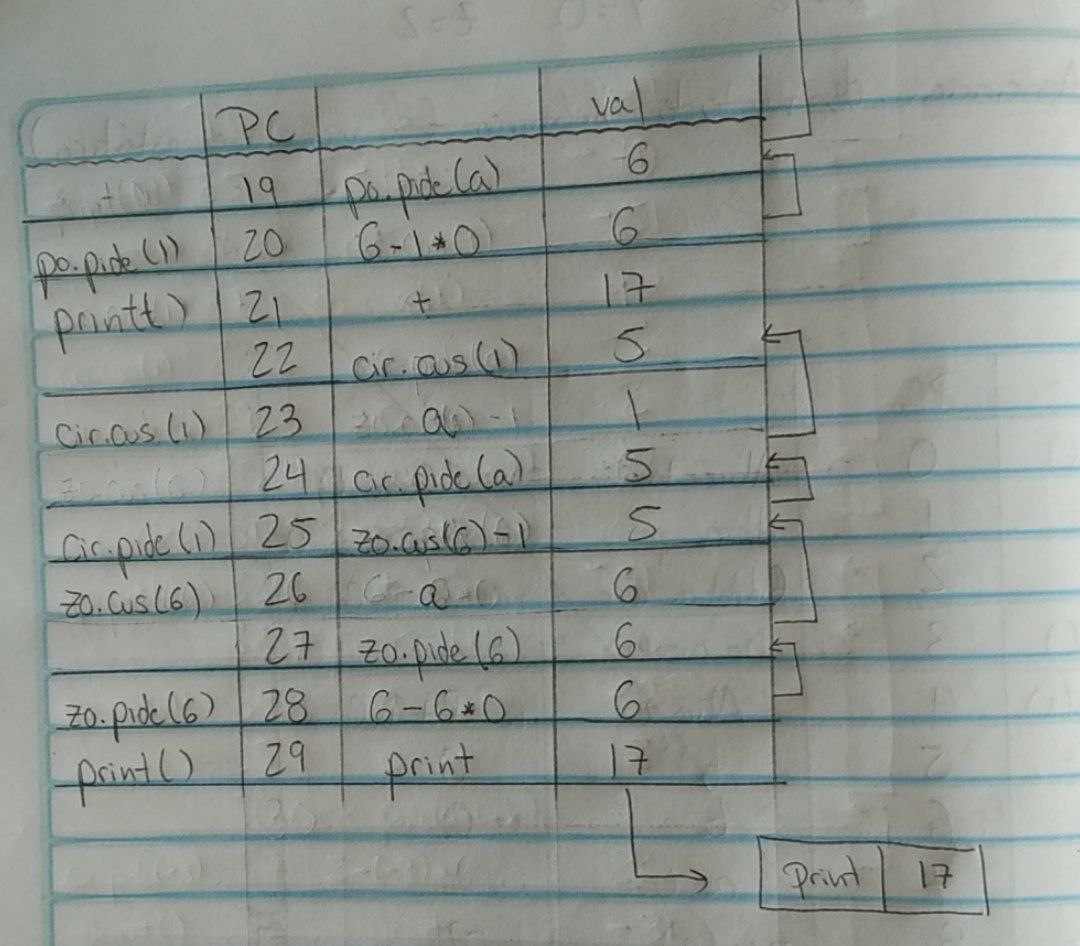 PC val
19 po.pide(a) 6
po.pide(1) 20 6-1*0 6
print() 21 + 17
22 cir.cus(1) 5
cir.cus(1) 23 a 1
24 cir.pide(a) 5
cir.pide(1) 25 zo.cus(6)-1 5
zo.cus(6) 26 a 6
27 zo.pide(6) 6
zo.pide(6) 28 6-6*0 6
print() 29 print 17
print 17